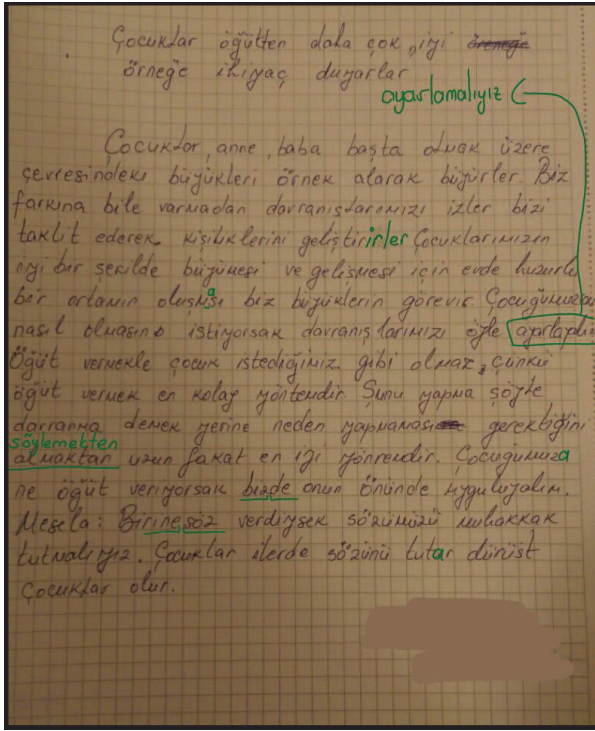 Çocuklar öğütten daha çok „iyi öreneğe
örneğe ihiyaç duyarlar
ayarlamalıyız
Çocuklar, anne, baba başta olmak üzere
çevresindeki büyükleri örnek alarak büyürler. Biz
farkına bile varmadan davranışlarımızı izler bizi
taklit ederek kişiliklerini geliştirirler Çocuklarımızın
iyi bir şekilde büyümesi ve gelişmesi için evde huzurlu
bir ortamın oluşması biz büyüklerin görevir. Çocuğumuzun
nasıl olmasını istiyorsak davranışlarımızı öyle ayarlaplım
Öğüt vermekle çocuk istediğimiz gibi olmaz, çünkü
öğüt vermek en kolay yöntemdir. Şunu yapma şöyle
davranma demek yerine neden yapmaması gerektiğini
söylemekten
almaktan uzun fakat en iyi yönremdir. Çocuğumuza
ne öğüt veriyorsak bizde onun önünde uyguluyalım.
Mesela: Birine söz verdiysek sözümüzü muhakkak
tutmalıyız. Çocuklar ilerde sözünü tutar dürüst
çocuklar olur.